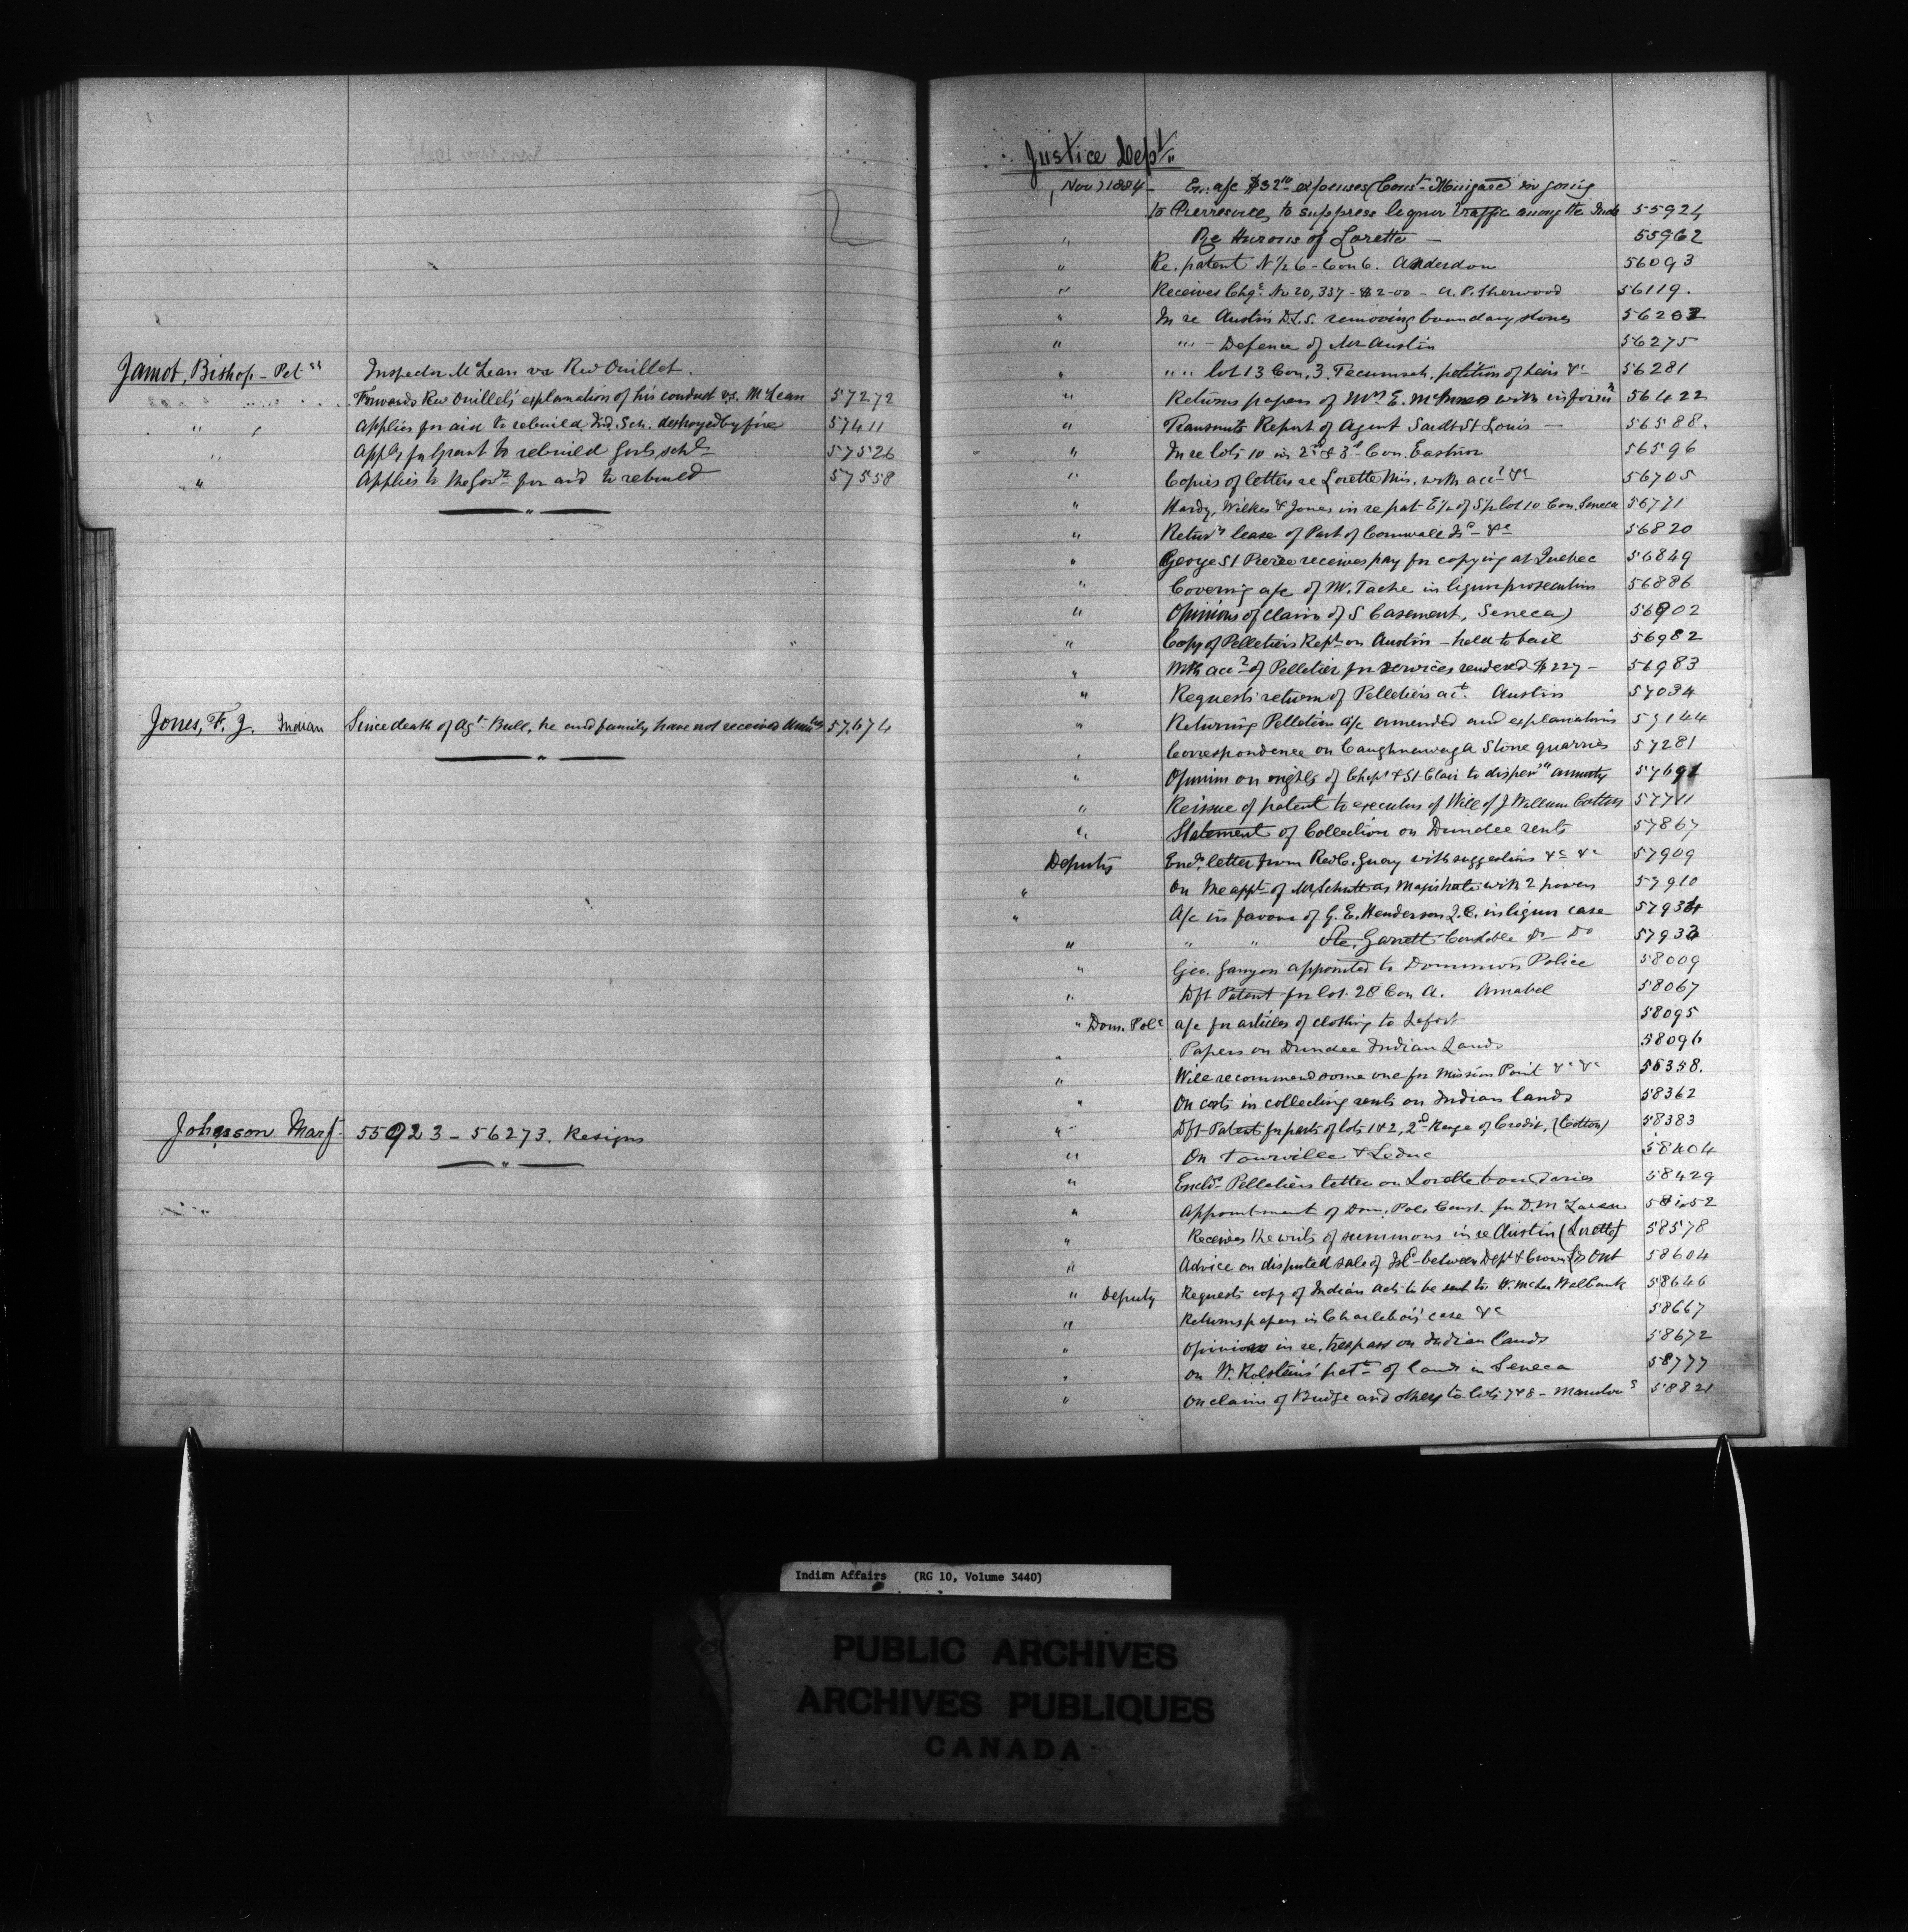 Jamot, Bishop - Pet
Inspector McLean vs Rev Ouillet.
Forwards Rev Ouillet's explanation of his conduct vs. McLean 57272
" Applies for aid to rebuild Ind. Sch. destroyed by fire 57411
" Appls for Grant to rebuild Girls schl 57526
" Applies to the Govt for aid to rebuild 57558
Jones, F. J. Indian Since death of Agt Bull, he and family have not received 57674
Johnson Marg 55923 - 56273. Resigns
Justice Dept
Nov 1884 - En: a/c $32 expenses Const in going
to suppress liquor traffic among the Inds 55924
" Re Hurons of Lorette - 55962
" Re. patent N 1/2 6 - Con 6. Anderdon 56093
" Receives Chq. No 20,337 - $2-00 - A. P. Sherwood 56119.
" In re Austin D.L.S. removing boundary stones
" " - Defence of Mr Austin 56275
" " " lot 13 Con. 3. Tecumseh, petition of heirs &c 56281
" Returns papers of E. with inform 56422
" Transmits Report of Agent Sault St Louis - 56588.
" In re lots 10 in 2d & 3d Con. Eastnor 56596
" Copies of letters re Lorette Mis. with acct &c 56705
" Hardy, Wilkes & Jones in re pat E 1/2 of lot 10 Con. Seneca 56771
" lease of Part of Cornwall Isd &c 56820
" George St Pierre receives pay for copying at Quebec 56849
" Covering a/c of Mr. Tache in liquor prosecution 56886
" Opinions of claim of S Casement, Seneca 56902
" Copy of Pelletiers Rept on Austin - held to bail 56982
" With acct of Pelletier for services rendered $227 - 56983
" Requests return of Pelletiers act. Austin 57034
" Returning Pelletiers a/c amended and explanations 57144
" Correspondence on Caughnawaga Stone quarries 57281
" Opinion on rights of Chipt & St Clair to annuity
" Reissue of patent to executors of Will of J William Cotton 57711
" Statement of Collection on Dundee rents 57867
Deputy letter from Rev C. Guay with suggestions &c &c 57909
" On the appt of Mr Schutt as Magistrate with 2 powers 57910
" A/c in favour of G. E. Henderson Q.C. in liquor case 57934
" " " Garrett Constable Do Do 57933
" Geo. Ganyon appointed to Dominion Police 58009
" Dft Patent for lot 28 Con A. Amabel 58067
" Dom. Polc a/c for articles of clothing to Lefort 58095
" Papers on Dundee Indian Lands 58096
" Will recommend some one for Mission Point &c &c 58358.
" On costs in collecting rents on Indian lands 58362
" Dft Patents for parts of lots 1 & 2, 2d Range of Credit. (Cotton) 58383
" On Tourville & Leduc 58404
" Encls Pelletiers letter on Lorette boundaries 58429
" Appointment of Dom. Pol. Const. for D. McLaren
" Receives the writs of summons in re Austin (Lorette) 58578
" Advice on disputed sale of Isd between Dept & Crown Lds Ont 58604
" Deputy Requests copy of Indian Acts to be sent to W. McLea Walbank 58646
" Returns papers in Charlebois' case &c 58667
" Opinions in re. trespass on Indian lands 58672
" On W. pat of lands in Seneca 58777
" On claim of Budge and others to lots 7 & 8 - 58821
Indian Affairs (RG 10, Volume 3440)
PUBLIC ARCHIVES
ARCHIVES PUBLIQUES
CANADA